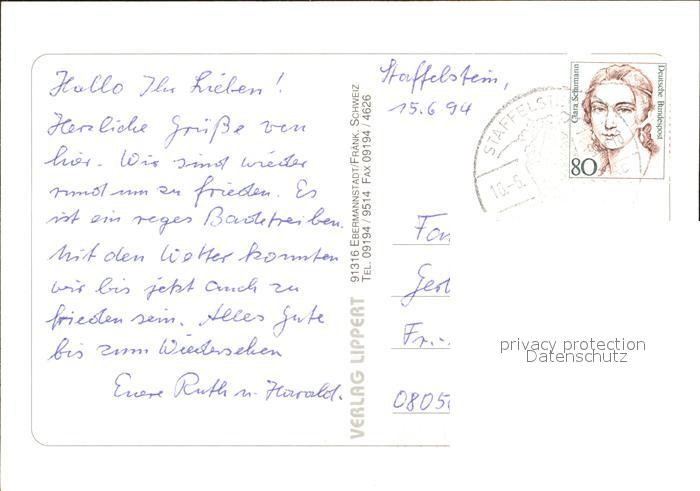 Hallo Ihr Lieben!
Herzliche Grüße von
hier. Wir sind wieder
rund um zu frieden. Es
ist ein reges Badetreiben.
Mit den Wetter konnten
wir bis jetzt auch zu
frieden sein. Alles Gute
bis zum Wiedersehen
Euere Ruth u. Harald.
VERLAG LIPPERT
91316 EBERMANNSTADT/FRÄNK. SCHWEIZ
TEL. 09194 / 9514 FAX 09194 / 4626
Staffelstein,
15.6.94
STAFFELST
16.-6.
Clara Schumann
Deutsche Bundespost
80
Fr.
0805
privacy protection
Datenschutz